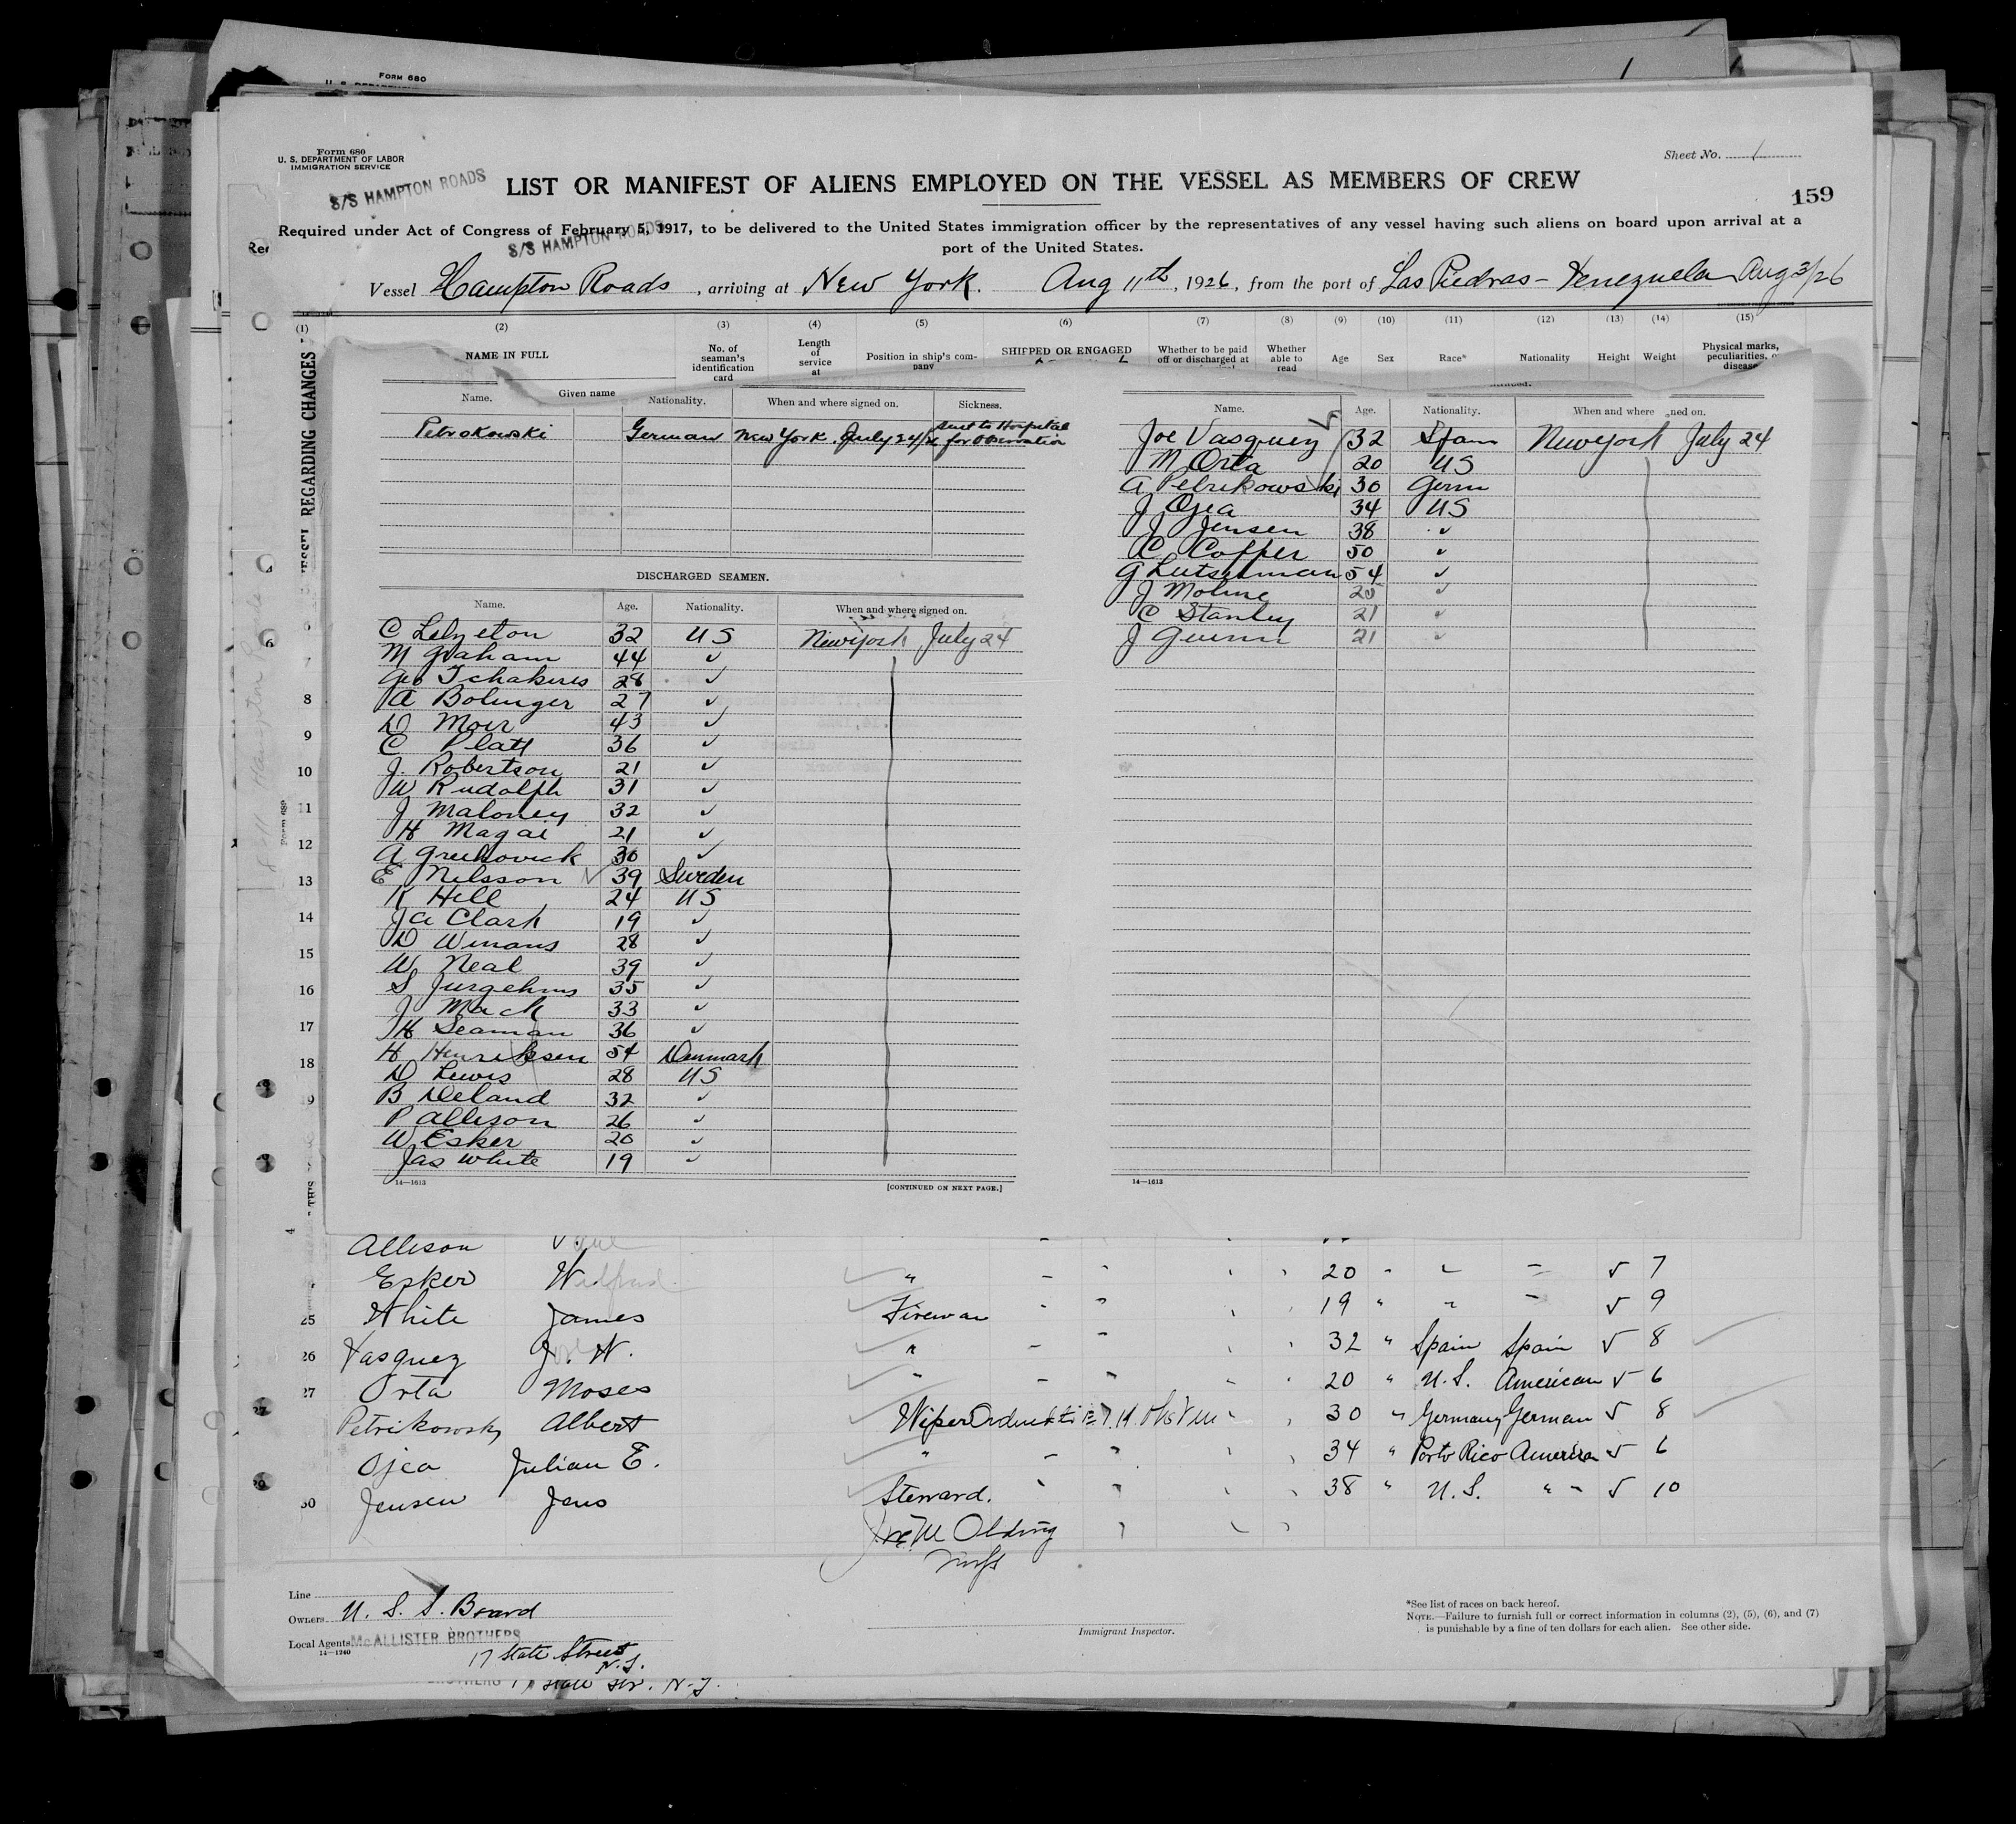 Form 680
U. S. DEPARTMENT OF LABOR
IMMIGRATION SERVICE
Sheet No. 1
S/S HAMPTON ROADS
LIST OR MANIFEST OF ALIENS EMPLOYED ON THE VESSEL AS MEMBERS OF CREW
159
Required under Act of Congress of February 5, 1917, to be delivered to the United States immigration officer by the representatives of any vessel having such aliens on board upon arrival at a
S/S HAMPTON ROADS
port of the United States.
Vessel Hampton Roads, arriving at New York. Aug 11th, 1926, from the port of Las Piedras - Venezuela Aug 3/26
(1) (2) (3) (4) (5) (6) (7) (8) (9) (10) (11) (12) (13) (14) (15)
NAME IN FULL No. of seaman's identification card Length of service at Position in ship's company SHIPPED OR ENGAGED Whether to be paid off or discharged at Whether able to read Age Sex Race* Nationality Height Weight Physical marks, peculiarities, disease
REGARDING CHANGES
Name. Given name Nationality. When and where signed on. Sickness.
Petrokowski German New York July 24/26 sent to Hospital for Observation
DISCHARGED SEAMEN.
Name. Age. Nationality. When and where signed on.
C 32 US New York July 24
M Graham 44 ✓
Geo Tchakeres 28 ✓
A Bolinger 27 ✓
D Moir 43 ✓
C Platt 36 ✓
J. Robertson 21 ✓
W Rudolph 31 ✓
J Maloney 32 ✓
H Magai 21 ✓
A 30 ✓
E Nilsson 39 Sweden
K Hill 24 US
Ja Clark 19 ✓
D Winans 28 ✓
W Neal 39 ✓
S Jurgehns 35 ✓
J Mack 33 ✓
H Seaman 36 ✓
H Henriksen 54 Denmark
D Lewis 28 US
B Deland 32 ✓
P Allison 26 ✓
W Esker 20 ✓
Jas White 19 ✓
14—1613 [CONTINUED ON NEXT PAGE.]
Name. Age. Nationality. When and where signed on.
Joe Vasquez 32 Spain New York July 24
M Orta 20 US
A Petrikowski 30 Germ
J Ojea 34 US
J Jensen 38 ✓
C Coffer 50 ✓
G Lutserman 54 ✓
J Moline 25 ✓
C Stanley 21 ✓
J Guinn 21 ✓
14—1613
Allison
Esker Wilfred " 20 " 5 7
25 White James Fireman 19 " " 5 9
26 Vasquez J. W. " 32 " Spain Spain 5 8
27 Orta Moses " 20 " U.S. American 5 6
Petrikowsky Albert Wiper 30 " Germany German 5 8
Ojea Julian E. " 34 " Porto Rico American 5 6
30 Jensen Jens Steward. 38 " U.S. " 5 10
Olding
Line
Owners U. S. S. Board
Local Agents McALLISTER BROTHERS
14—1240
17 State Street
N.Y.
17 State Str. N-Y.
Immigrant Inspector.
*See list of races on back hereof.
NOTE.—Failure to furnish full or correct information in columns (2), (5), (6), and (7)
is punishable by a fine of ten dollars for each alien. See other side.